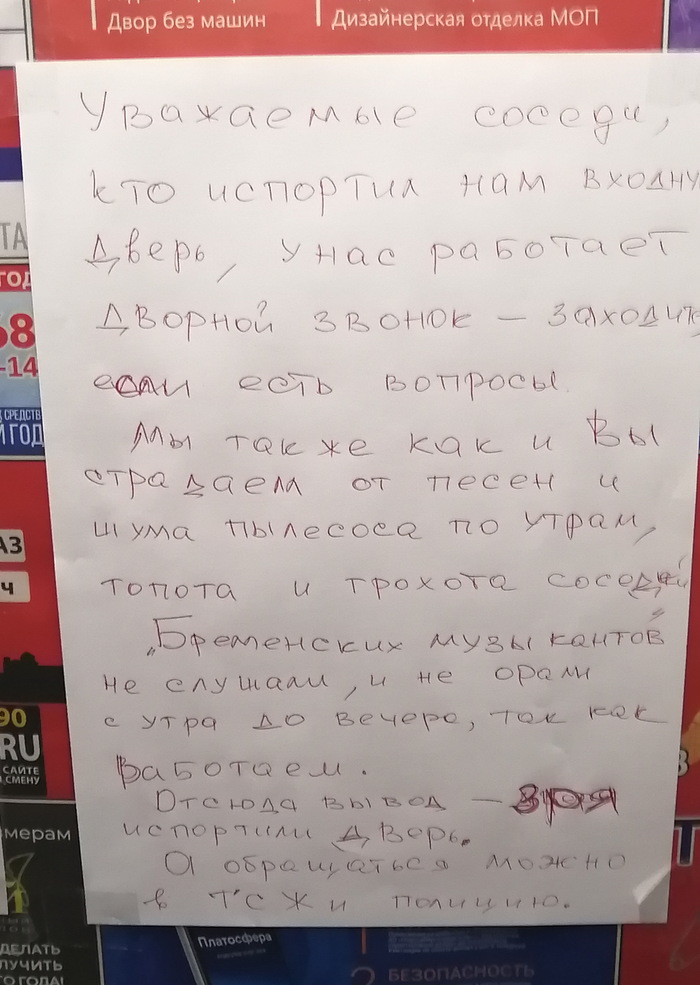 Двор без машин
Дизайнерская отделка МОП
Уважаемые соседи,
кто испортил нам входну
дверь, у нас работает
дворной звонок – заходите
если есть вопросы.
Мы также как и Вы
страдаем от песен и
шума пылесоса по утрам,
топота и грохота соседей
„Бременских музыкантов"
не слушали, и не орали
с утра до вечера, так как
работаем.
Отсюда вывод – зря
испортили дверь.
А обращаться можно
в ТСЖ и полицию.
ТА
ГОД
68
-14
СРЕДСТВ
ГОД
АЗ
Ч
90
RU
САЙТЕ
СМЕНУ
мерам
ДЕЛАТЬ
ЛУЧИТЬ
ГОДА!
Платосфера
БЕЗОПАСНОСТЬ